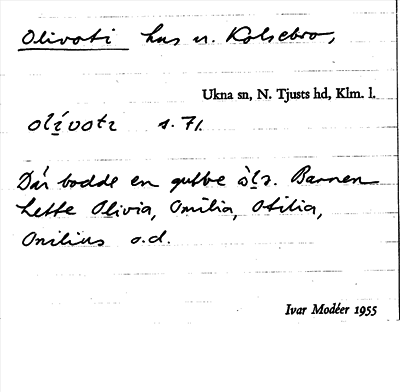 Olivoti hus u. Kolsebro,
Ukna sn, N. Tjusts hd, Klm. l.
olívotɩ s. 71.
Där bodde en gubbe
Barnen
hette Olivia, Omilia, Otilia,
Onilius o.d.
Ivar Modéer 1955